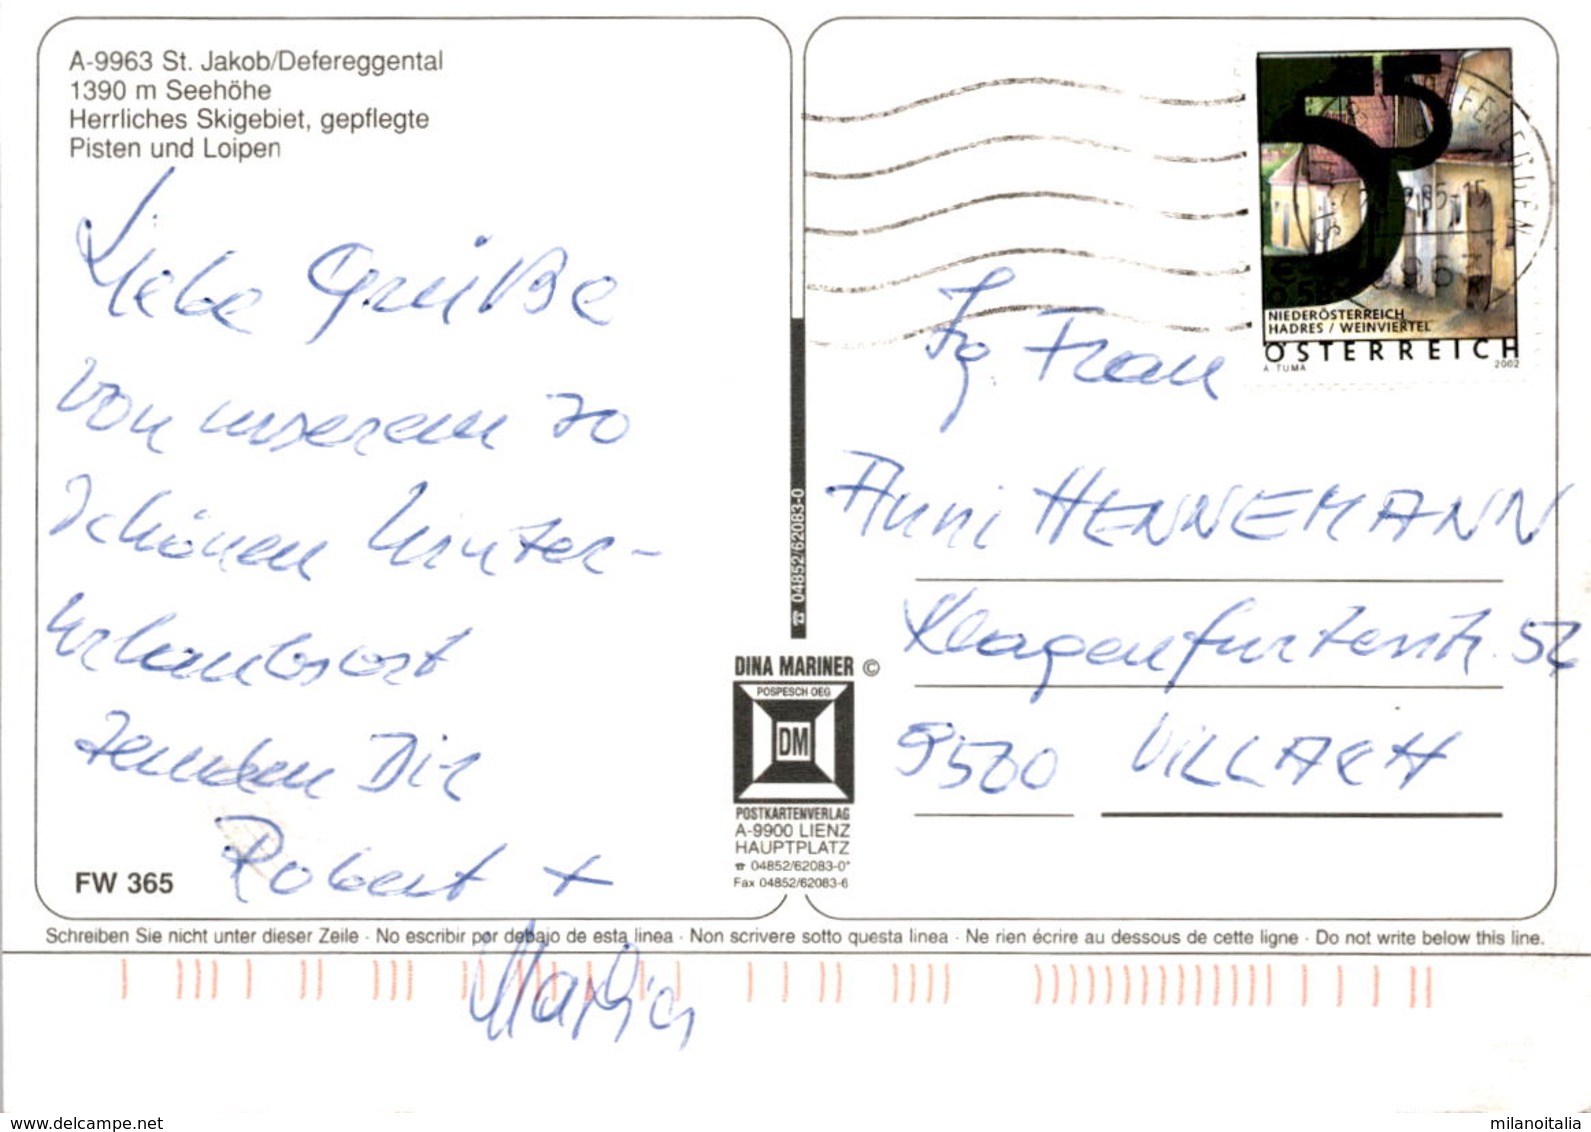 A-9963 St. Jakob/Defereggental
1390 m Seehöhe
Herrliches Skigebiet, gepflegte
Pisten und Loipen
Liebe Grüße
von unserem so
schönen Winter-
urlaubsort
senden Dir
Robert +
Maria
FW 365
☎ 04852/62083-0
DINA MARINER ©
POSPESCH OEG
DM
POSTKARTENVERLAG
A-9900 LIENZ
HAUPTPLATZ
☎ 04852/62083-0*
Fax 04852/62083-6
55
NIEDERÖSTERREICH
HADRES / WEINVIERTEL
ÖSTERREICH
A. TUMA 2002
Frau
Anni HENNEMANN
Klagenfurterstr. 52
9500 VILLACH
Schreiben Sie nicht unter dieser Zeile · No escribir por debajo de esta linea · Non scrivere sotto questa linea · Ne rien écrire au dessous de cette ligne · Do not write below this line.
www.delcampe.net
milanoitalia